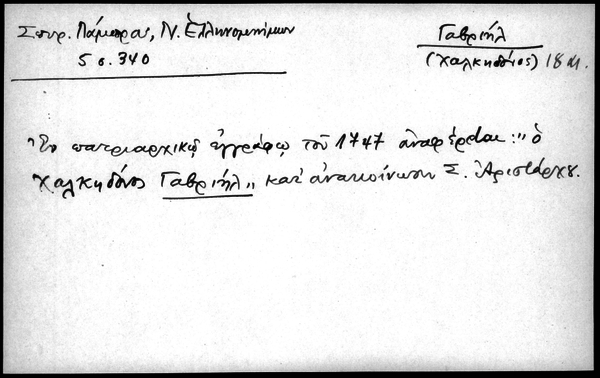 Σπυρ. Λάμπρος, Ν. Ἑλληνομνήμων
5 σ. 340
Γαβριήλ
(Χαλκηδόνος) 18 αι.
Ἐν πατριαρχικῷ ἐγγράφῳ τοῦ 1747 ἀναφέρεται: "ὁ
Χαλκηδόνος Γαβριήλ" κατ' ἀνακοίνωσιν Σ. Ἀριστάρχου.